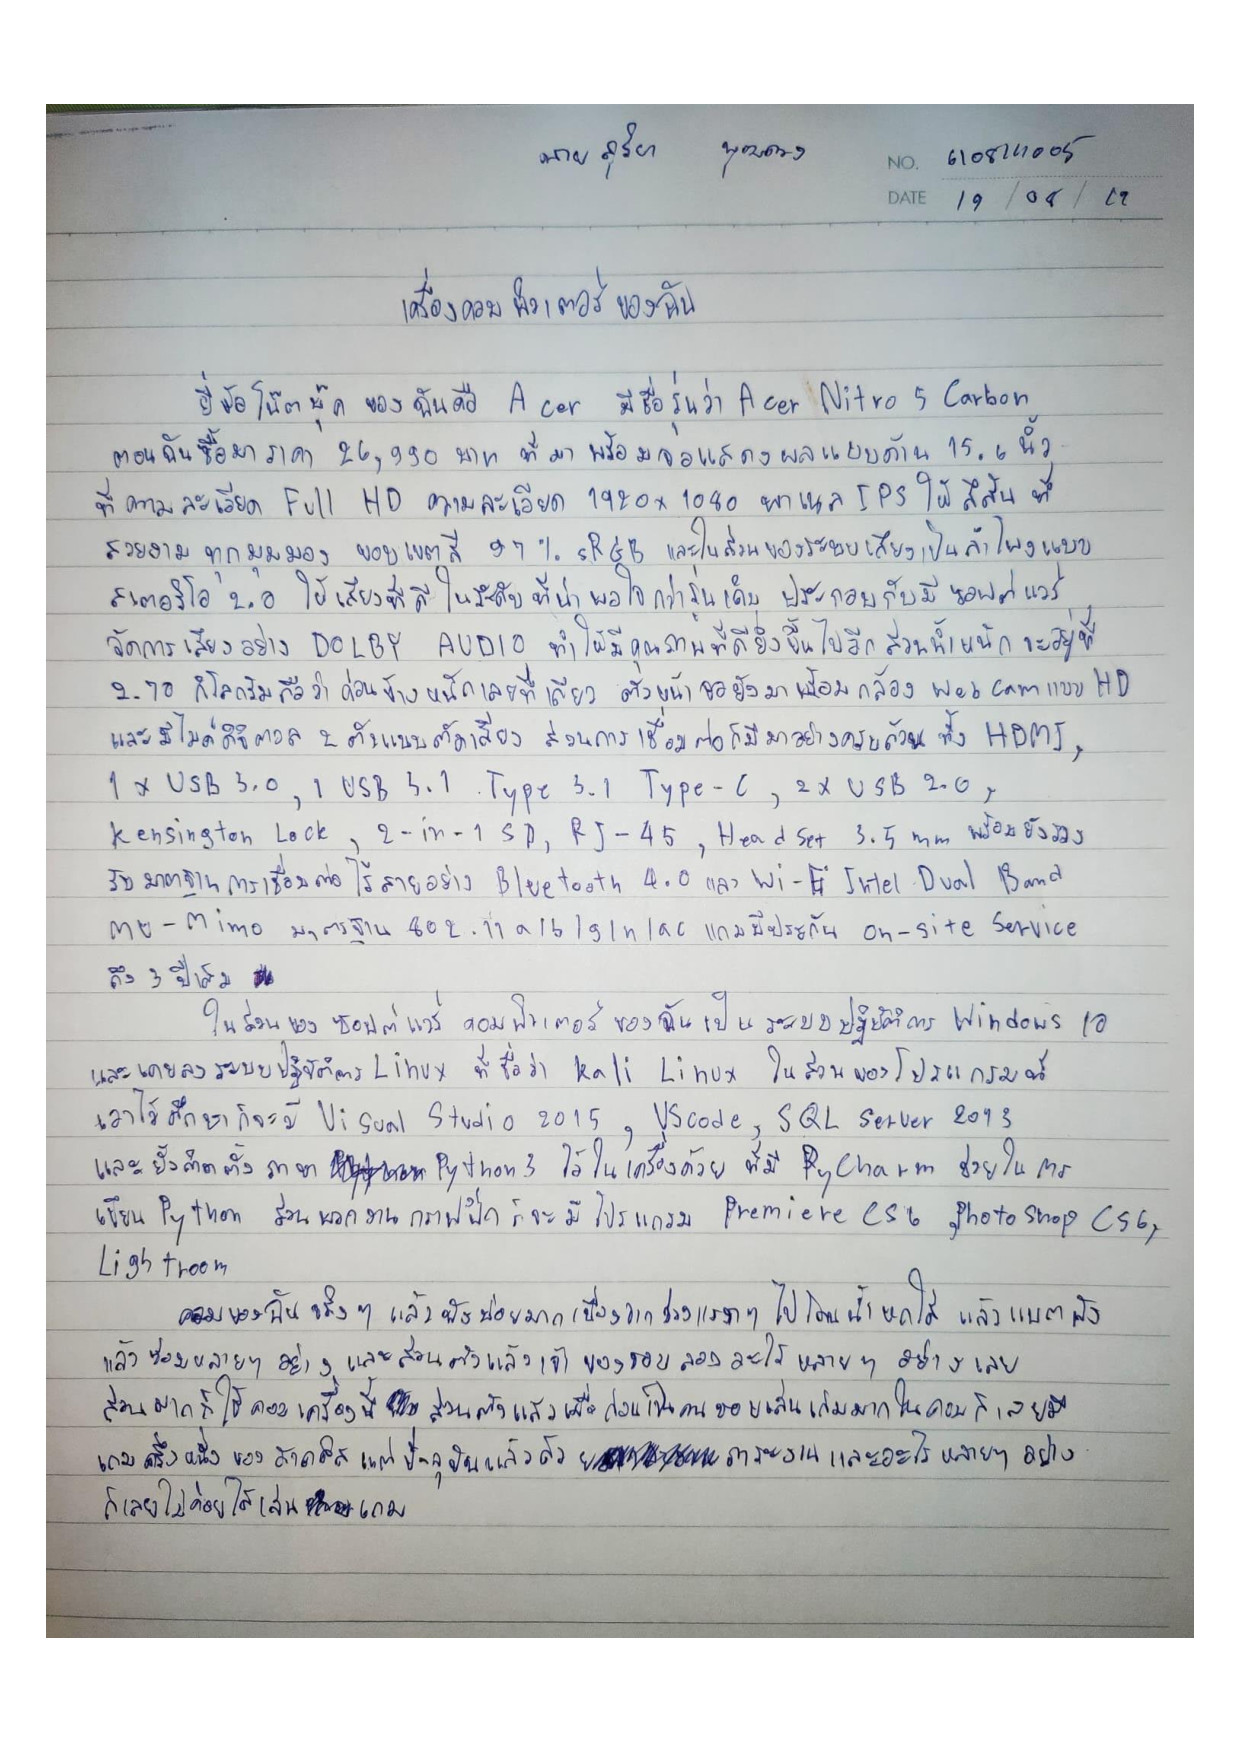 นาย สุริยา
NO. 610821005
DATE 19 / 08 / 62
เครื่องคอมพิวเตอร์ของฉัน
ยี่ห้อโน๊ตบุ๊ค ของฉันคือ Acer มีชื่อรุ่นว่า Acer Nitro 5 Carbon
ตอนฉันซื้อมาราคา 26,990 บาท ที่มาพร้อมจอแสดงผลแบบด้าน 15.6 นิ้ว
ที่ความละเอียด Full HD ความละเอียด 1920x1080 พาเนล IPS ให้สีสัน ที่
สวยงาม ทุกมุมมอง ขอบเขตสี 97% sRGB และในส่วนของระบบเสียงเป็นลำโพงแบบ
สเตอริโอ 2.0 ให้เสียงที่ดีในระดับที่น่าพอใจกว่ารุ่นเดิม ประกอบกับมีซอฟต์แวร์
จัดการเสียงอย่าง DOLBY AUDIO ทำให้มีคุณภาพที่ดียิ่งขึ้นไปอีก ส่วนน้ำหนักจะอยู่ที่
2.70 กิโลกรัมถือว่าค่อนข้างหนักเลยทีเดียว ด้านหน้าจอยังมาพร้อมกล้อง Webcam แบบ HD
และมีไมค์ดิจิตอล 2 ตัวแบบตัดเสียง ส่วนการเชื่อมต่อก็มีมาอย่างครบถ้วน ทั้ง HDMI,
1 x USB 3.0, 1 USB 3.1 Type 3.1 Type-C, 2x USB 2.0,
Kensington Lock, 2-in-1 SD, RJ-45, HeadSet 3.5 mm พร้อมยังรอง
รับมาตฐานการเชื่อมต่อไร้สายอย่าง Bluetooth 4.0 และ Wi-Fi Intel Dual Band
mu-mimo มาตรฐาน 802.11 a/b/g/n/ac แถมมีประกัน on-site Service
ถึง 3 ปีเต็ม
ในส่วนของ ซอฟต์แวร์ คอมพิวเตอร์ ของฉันเป็น ระบบปฏิบัติการ Windows 10
และเคยลงระบบปฏิบัติการ Linux ที่ชื่อว่า Kali Linux ในส่วนของโปรแกรมที่
เอาไว้ศึกษาก็จะมี Visual Studio 2015, VScode, SQL Server 2013
และยังติดตั้ง ภาษา Python3 ไว้ในเครื่องด้วย ที่มี PyCharm ช่วยในการ
เขียน Python ส่วนพวกงานกราฟฟิก ก็จะมีโปรแกรม Premiere CS6 Photoshop CS6,
Lightroom
คอมของฉันจริงๆ แล้วพังบ่อยมากเนื่องจากช่วงแรกๆ ไปโดนน้ำหกใส่ แล้วแบตพัง
แล้วซ่อมหลายๆ อย่าง และส่วนตัวแล้ว ชอบลองอะไรหลายๆ อย่างเลย
ส่วนมากก็ใช้คอมเครื่องนี้ ส่วนตัวแล้วเมื่อก่อนเป็นคนชอบเล่นเกมมากในคอมก็เลยมี
เกมครึ่งหนึ่งของฮาดดิส แต่ปัจจุบันแล้วด้วย ภาระงานและอะไรหลายๆ อย่าง
ก็เลยไม่ค่อยได้เล่น เกม